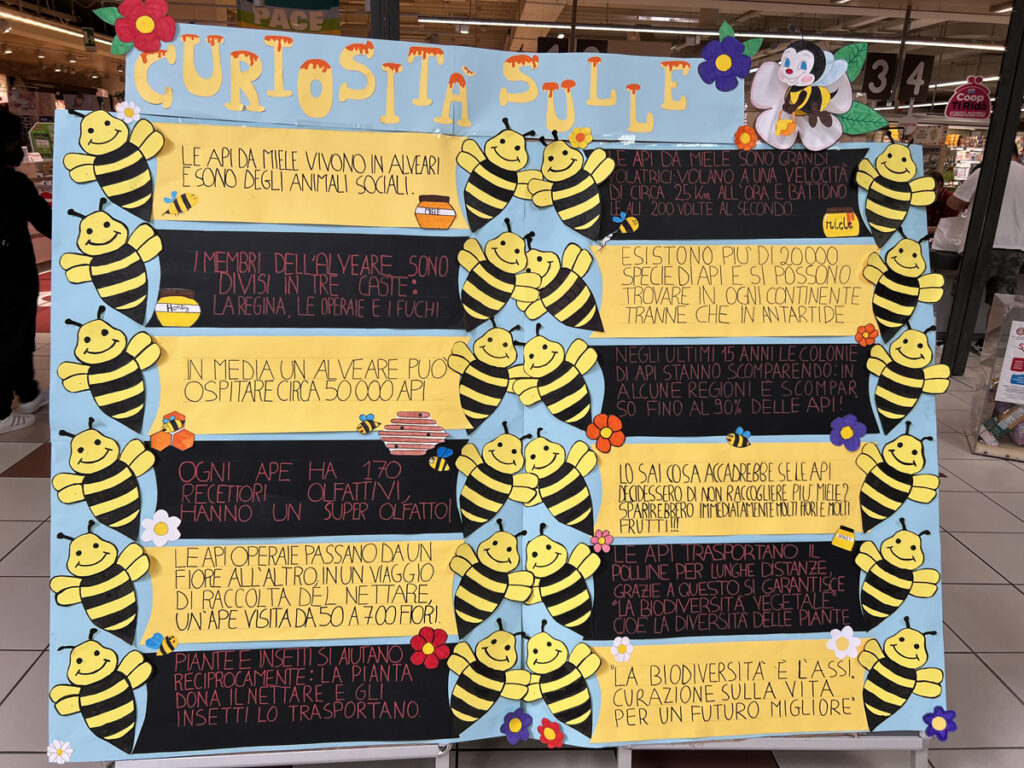 PACE
CURIOSITÀ SULLE
3 4
coop
Ti Rida
LE API DA MIELE VIVONO IN ALVEARI
E SONO DEGLI ANIMALI SOCIALI.
MIELE
I MEMBRI DELL'ALVEARE SONO
DIVISI IN TRE CASTE:
LA REGINA, LE OPERAIE E I FUCHI
Honey
IN MEDIA UN ALVEARE PUÒ
OSPITARE CIRCA 50 000 API
OGNI APE HA 170
RECETTORI OLFATTIVI,
HANNO UN SUPER OLFATTO!
LE API OPERAIE PASSANO DA UN
FIORE ALL'ALTRO, IN UN VIAGGIO
DI RACCOLTA DEL NETTARE,
UN'APE VISITA DA 50 A 700 FIORI
PIANTE E INSETTI SI AIUTANO
RECIPROCAMENTE: LA PIANTA
DONA IL NETTARE E GLI
INSETTI LO TRASPORTANO.
LE API DA MIELE SONO GRANDI
VOLATRICI. VOLANO A UNA VELOCITÀ
DI CIRCA 25 Km ALL'ORA E BATTONO
LE ALI 200 VOLTE AL SECONDO.
Miele
ESISTONO PIÙ DI 20000
SPECIE DI API E SI POSSONO
TROVARE IN OGNI CONTINENTE
TRANNE CHE IN ANTARTIDE
NEGLI ULTIMI 15 ANNI LE COLONIE
DI API STANNO SCOMPARENDO: IN
ALCUNE REGIONI È SCOMPAR
SO FINO AL 90% DELLE API!
LO SAI COSA ACCADREBBE SE LE API
DECIDESSERO DI NON RACCOGLIERE PIÙ MIELE?
SPARIREBBERO IMMEDIATAMENTE MOLTI FIORI E MOLTI
FRUTTI!!!
LE API TRASPORTANO IL
POLLINE PER LUNGHE DISTANZE
GRAZIE A QUESTO SI GARANTISCE
"LA BIODIVERSITÀ VEGETALE"
CIOÈ LA DIVERSITÀ DELLE PIANTE
"LA BIODIVERSITÀ È L'ASSI
CURAZIONE SULLA VITA
PER UN FUTURO MIGLIORE"